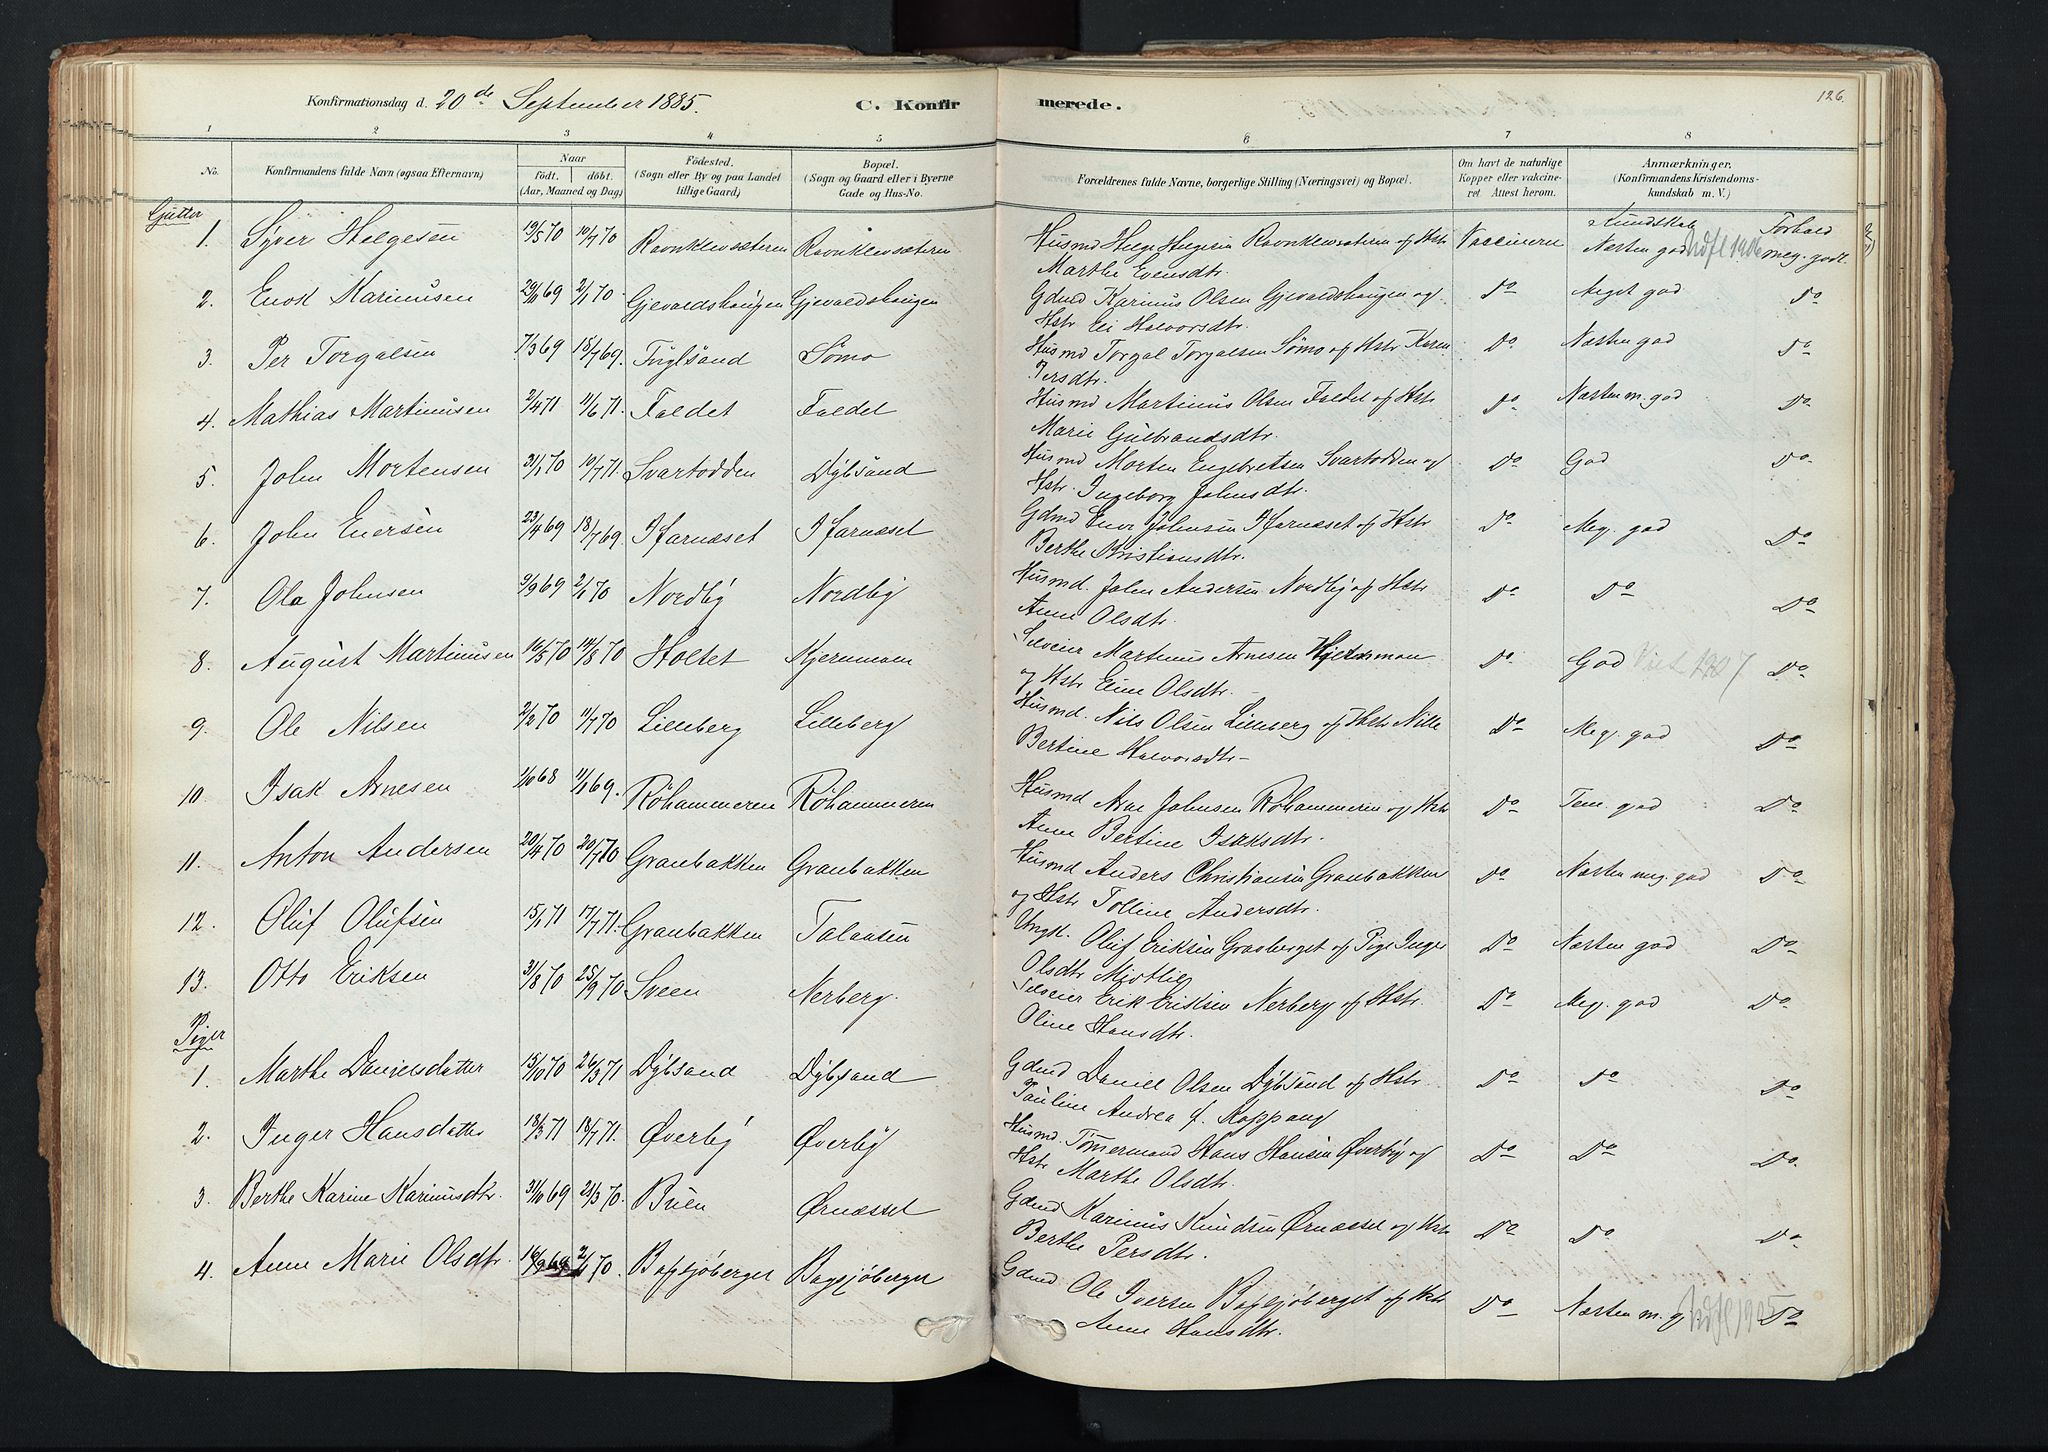 Konfirmationsdag d. 20de September 1885. C. Konfirmerede. 126.
1 2 3 4 5 6 7 8
No. Konfirmandens fulde Navn (ogsaa Efternavn) Naar født. døbt. (Aar, Maaned og Dag) Fødested. (Sogn eller By og paa Landet tillige Gaard) Bopæl. (Sogn og Gaard eller i Byerne Gade og Hus-No. Forældrenes fulde Navne, borgerlige Stilling (Næringsvei) og Bopæl. Om havt de naturlige Kopper eller vaccineret. Attest herom. Anmærkninger. (Konfirmandens Kristendomskundskab m. V.)
Gutter Kundskab Forhold
1. Syver Helgesen 19/5 70 10/7 70 Ravnklevsæteren Ravnklevsæteren Husmd Helge Helgesen Ravnklevsæteren og Hstr Marthe Evensdtr. Vaccinerne Næsten god Udfl 1906 meg. godt.
2. Enok Karinusen 29/10 69 2/1 70 Gjevaldshaugen Gjevaldshaugen Gdmd Karinus Olsen Gjevaldshaugen og Hstr Eli Halvorsdtr. Do Meget god Do
3. Per Torgalsen 7/3 69 18/7 69. Fuglsand Sømo Husmd Torgal Torgalsen Sømo og Hstr Karen Persdtr. Do Næsten god Do
4. Mathias Martinusen 2/4 71 11/6 71. Faldet Faldet Husmd Martinus Olsen Faldet og Hstr Marie Gulbrandsdtr. Do Næsten m. god Do
5. John Mortensen 31/1 70 10/7 71. Svartodden Dybsand Husmd Morten Engebretsen Svartodden og Hstr. Ingeborg Johnsdtr. Do God Do
6. John Enersen 23/4 69 18/7 69. Ifarnæset Ifarnæset Gdmd Ener Johnsen Ifarnæset og Hstr Berthe Kristiansdtr. Do Meg. god Do
7. Ola Johnsen 9/9 69 2/1 70 Nordby Nordby Husmd. John Andersen Nordby og Hstr Anne Olsdtr. Do Do Do
8. August Martinusen 16/5 70 14/8 70 Holtet Kjernmoen Selveier Martinus Arnesen og Hstr Eline Olsdtr. Do God 1907 Do
9. Ole Nilsen 2/2 70 11/7 70 Lilleberg Lilleberg Husmd. Nils Olsen Lilleberg og Hstr Nille Bertine Halvorsdtr Do Meg. god Do
10. Isak Arnesen 1/10 68 11/1 69. Røhammeren Røhammeren Husmd Arne Johnsen Røhammeren og Hstr Anne Bertine Isaksdtr. Do Tem. god Do
11. Anton Andersen 22/4 70 20/7 70 Granbakken Granbakken Husmd Anders Christiansen Granbakken og Hstr Polline Andersdtr. Do Næsten meg. god Do
12. Oluf Olufsen 15/1 71 17/7 71. Granbakken Talaasen Ungk. Oluf Eriksen Grasberget og Pige Inger Olsdtr Myrtlieg Do Næsten god Do
13. Otto Eriksen 31/8 70 25/9 70 Sveen Nerberg. Selveier Erik Eriksen Nerberg og Hstr. Oline Hansdtr. Do Meg. god Do
Piger
1. Marthe Danielsdatter 15/10 70 26/3 71 Dybsand Dybsand Gdmd Daniel Olsen Dybsand og Hstr. Pauline Andrea f. Koppang Do Do Do
2. Inger Hansdatter 18/3 71 18/7 71. Øverby Øverby Husmd. Tømermand Hans Hansen Øverby og Hstr Marthe Olsdtr. Do Do Do.
3. Berthe Karine Karinusdtr. 31/10 69 21/3 70. Buen Ørnæsset Gdmd Karinus Knudsen Ørnæsset og Hstr Berthe Persdtr. Do Do Do
4. Anne Marie Olsdtr. 16/9 69 2/1 70. Bagsjøberget Bagsjøberget Gdmd Ole Iversen Bagsjøberget og Hstr Anne Hansdtr. Do Næsten m. g Udfl 1905 Do